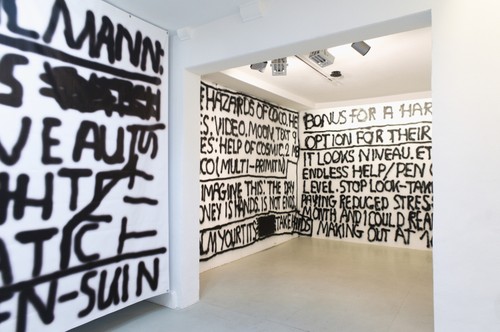 LMANN:
S
VE AUTS
HT
ATIC
EN-SUIN
HAZARDS OF COCO. HE
S: VIDEO, MOON, TEXT
S: HELP OF COSMIC. 2.
CO (MULTI-
IMAGINE THIS: THE DAY
NEY IS HANDS. IS NOT
BONUS FOR A HAR
OPTION FOR THEIR
IT LOOKS NIVEAU. ET
ENDLESS HELP/PEN
LEVEL. STOP LOOK-TAK
PAYING REDUCED STRES
MONTH AND I COULD REA
MAKING OUT AT